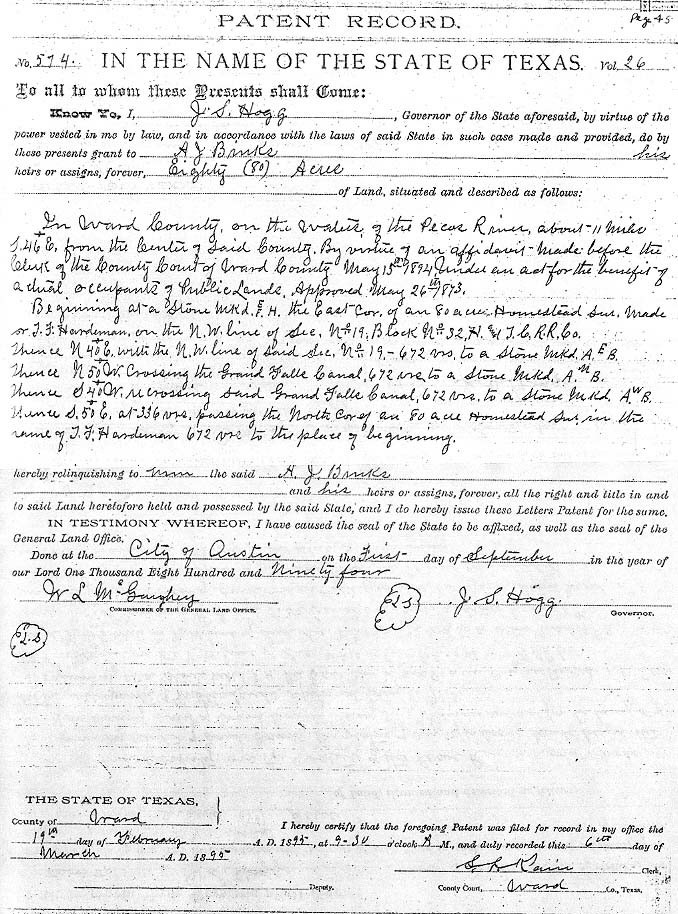 Pag 45
PATENT RECORD.
No. 574. IN THE NAME OF THE STATE OF TEXAS. Vol. 26
To all to whom these Presents shall Come:
Know Ye, I, J. S. Hogg, Governor of the State aforesaid, by virtue of the
power vested in me by law, and in accordance with the laws of said State in such case made and provided, do by
these presents grant to A J Brinks his
heirs or assigns, forever, Eighty (80) Acres
of Land, situated and described as follows:
In Ward County, on the waters of the Pecos River, about 11 miles
S. 46 E, from the Center of said County. By virtue of an affidavit made before the
Clerk of the County Court of Ward County May 15th 1894 under an act for the benefit of
actual occupants of Public Lands. Approved May 26th 1873.
Beginning at a Stone Mkd. F. E. H. the East Cor. of an 80 acre Homestead Sur. Made
for T. F. Hardeman, on the N.W. line of Sec. No 19, Block No 32, H. & T. C. R. R. Co.
Thence N 40 E. with the N.W. line of said Sec. No 19, - 672 vrs. to a Stone Mkd. A. E B.
Thence N 50 W. Crossing the Grand Falls Canal, 672 vrs to a Stone Mkd. A. N B.
Thence S 40 W. recrossing said Grand Falls Canal, 672 vrs. to a Stone Mkd A W B.
Thence S. 50 E, at 336 vrs. passing the North Cor of an 80 acre Homestead Sur in the
name of T. F. Hardeman 672 vrs to the place of beginning.
hereby relinquishing to him the said A. J. Brinks
and his heirs or assigns, forever, all the right and title in and
to said Land heretofore held and possessed by the said State, and I do hereby issue these Letters Patent for the same.
IN TESTIMONY WHEREOF, I have caused the seal of the State to be affixed, as well as the seal of the
General Land Office.
Done at the City of Austin on the First day of September in the year of
our Lord One Thousand Eight Hundred and Ninety four
W L McGaughey L S J. S. Hogg.
COMMISSIONER OF THE GENERAL LAND OFFICE. Governor.
L. S
THE STATE OF TEXAS,
County of Ward
I hereby certify that the foregoing Patent was filed for record in my office the
19th day of February A. D. 1895, at 9-30 o'clock A M., and duly recorded this 6th day of
March A. D. 1895
Clerk,
Deputy. County Court, Ward Co., Texas.